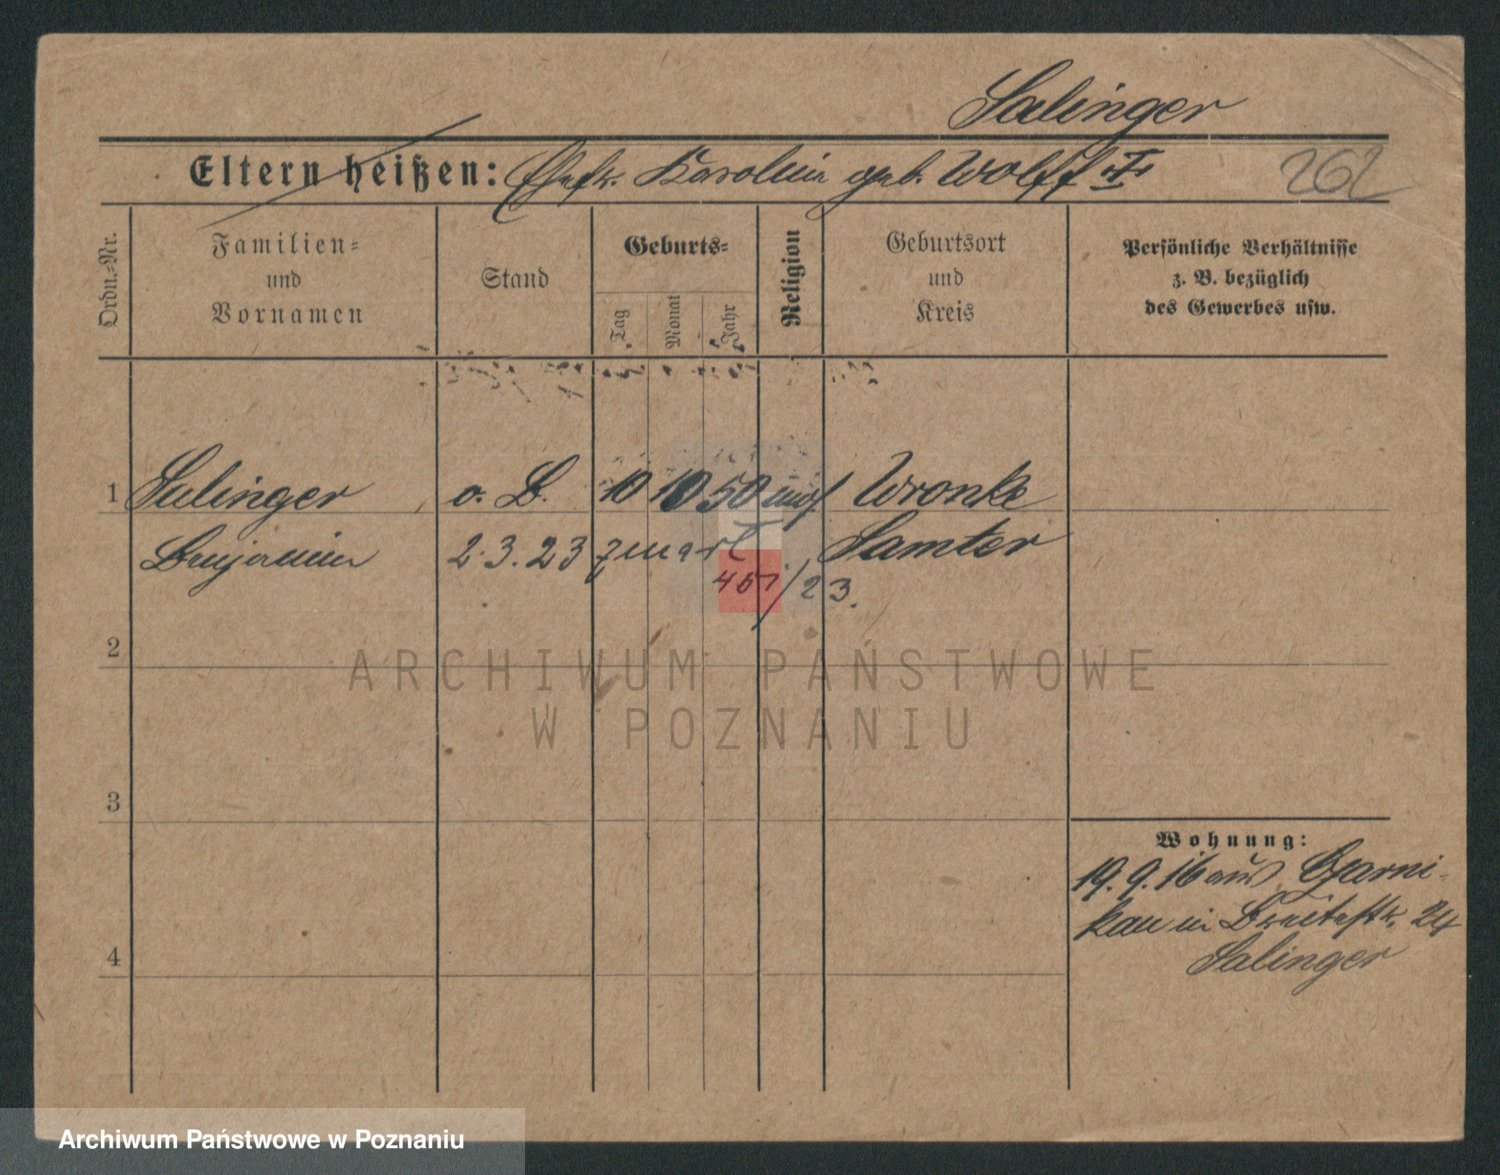 Salinger
Eltern heißen: Ehefr. Karolin geb. Wolff
262
Ordn.-Nr.
Familien-
und
Vornamen
Stand
Geburts-
Tag
Monat
Jahr
Religion
Geburtsort
und
Kreis
Persönliche Verhältnisse
z. B. bezüglich
des Gewerbes usw.
1 Salinger o. B. 10 10 50 mos. Wronke
Benjamin 2.3.23 Samter
451/23.
2
ARCHIWUM PAŃSTWOWE
W POZNANIU
3
Wohnung:
19.9.16 aus Czarni-
kau in Breitestr. 24
4
Salinger
Archiwum Państwowe w Poznaniu